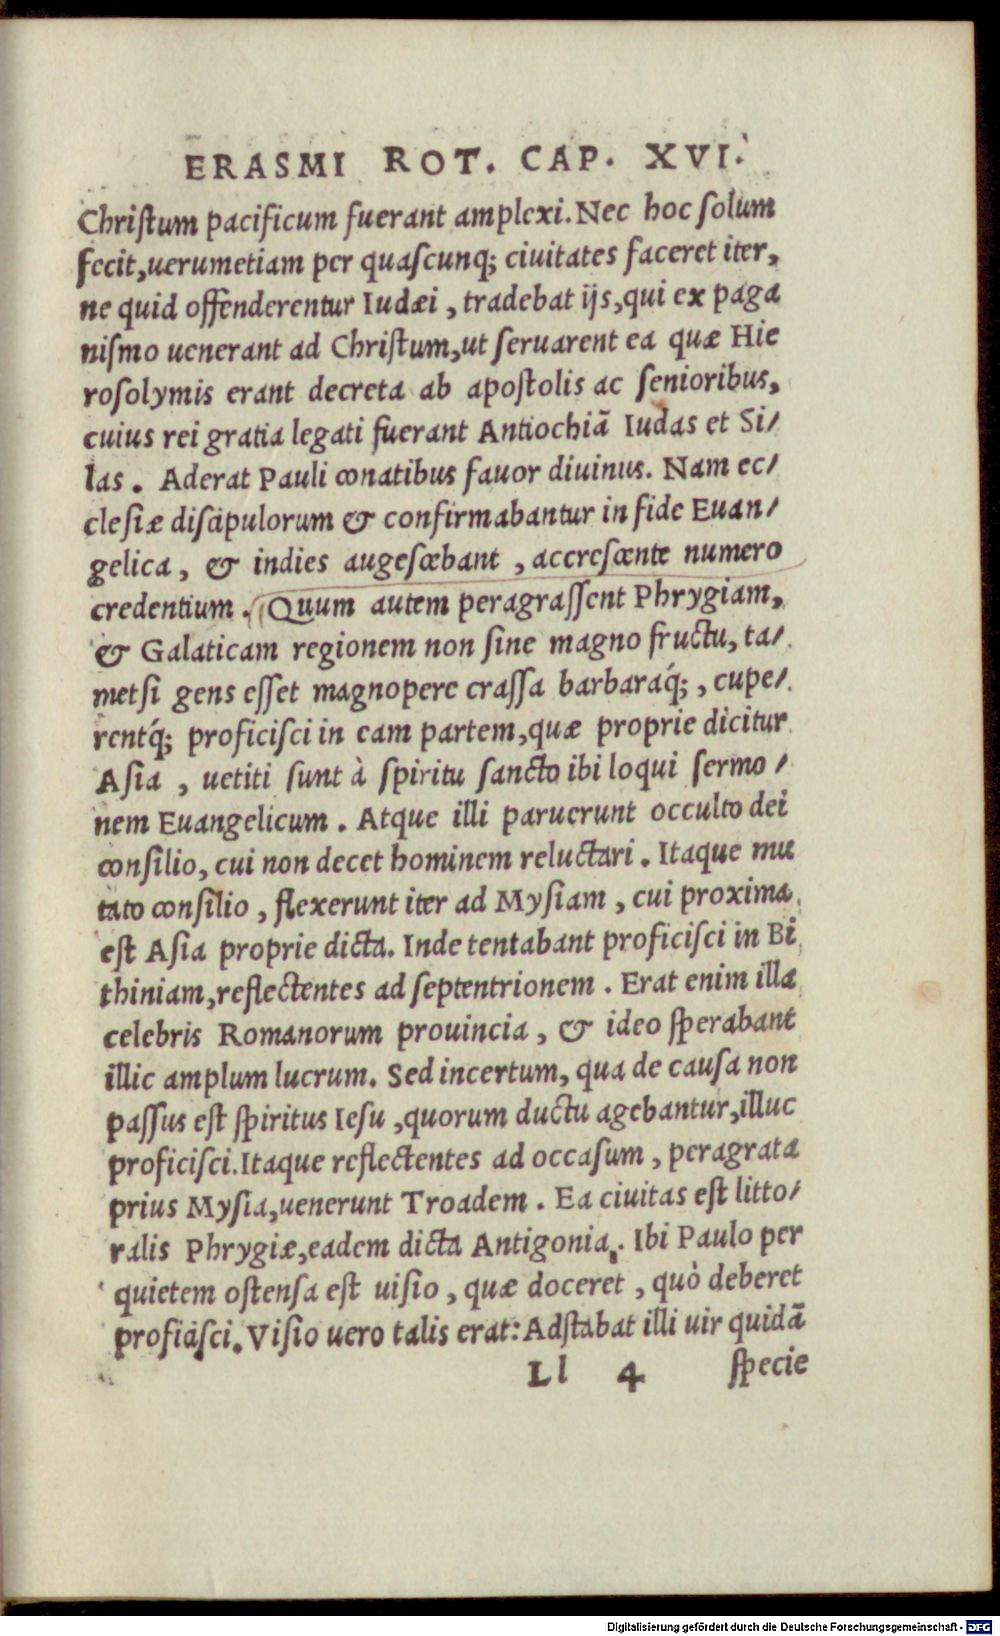 ERASMI ROT. CAP. XVI.
Chriſtum pacificum fuerant amplexi. Nec hoc ſolum
fecit, uerumetiam per quaſcunq; ciuitates faceret iter,
ne quid offenderentur Iudæi, tradebat ijs, qui ex paga
niſmo uenerant ad Chriſtum, ut ſeruarent ea quæ Hie
roſolymis erant decreta ab apoſtolis ac ſenioribus,
cuius rei gratia legati fuerant Antiochiã Iudas et Si/
las. Aderat Pauli conatibus fauor diuinus. Nam ec/
cleſiæ diſcipulorum & confirmabantur in fide Euan/
gelica, & indies augeſcebant, accreſcente numero
credentium. Quum autem peragraſſent Phrygiam,
& Galaticam regionem non ſine magno fructu, ta/
metſi gens eſſet magnopere craſſa barbaraq́;, cupe/
rentq́; proficiſci in eam partem, quæ proprie dicitur
Aſia, uetiti ſunt à ſpiritu ſancto ibi loqui ſermo/
nem Euangelicum. Atque illi paruerunt occulto dei
conſilio, cui non decet hominem reluctari. Itaque mu
tato conſilio, flexerunt iter ad Myſiam, cui proxima
eſt Aſia proprie dicta. Inde tentabant proficiſci in Bi
thiniam, reflectentes ad ſeptentrionem. Erat enim illa
celebris Romanorum prouincia, & ideo ſperabant
illic amplum lucrum. Sed incertum, qua de cauſa non
paſſus eſt ſpiritus Ieſu, quorum ductu agebantur, illuc
proficiſci. Itaque reflectentes ad occaſum, peragrata
prius Myſia, uenerunt Troadem. Ea ciuitas eſt litto/
ralis Phrygiæ, eadem dicta Antigonia. Ibi Paulo per
quietem oſtenſa eſt uiſio, quæ doceret, quò deberet
proficiſci. Viſio uero talis erat: Adſtabat illi uir quidã
Ll 4 ſpecie
Digitalisierung gefördert durch die Deutsche Forschungsgemeinschaft - DFG